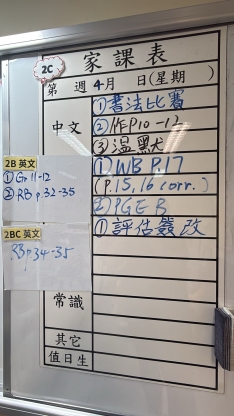 2C
家課表
第 週 4月 日(星期 )
中文
①書法比賽
②作P10-12
③温默
2B 英文
①Gr.11-12
②RB p.32-35
①WB P.17
(p.15,16 corr.)
②PGE B
2BC 英文
RB p.34-35
①評估簽改
常識
其它
值日生